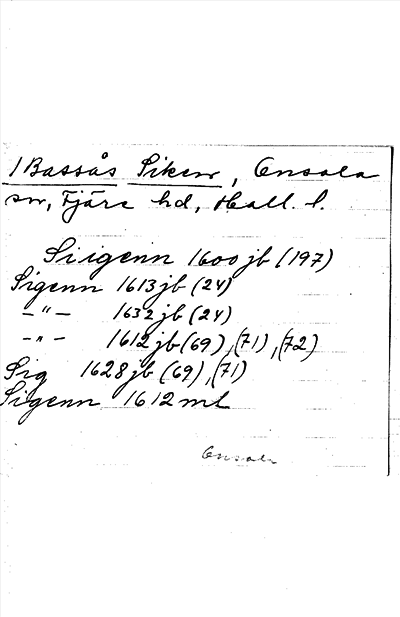 1 Bassås Siken, Onsala
sn, Fjäre hd, Hall. l.
Siigenn 1600 jb (197)
Sigenn 1613 jb (24)
–"– 1632 jb (24)
–"– 1612 jb (69), (71), (72)
Sig 1628 jb (69), (71)
Sigenn 1612 ml
Onsala